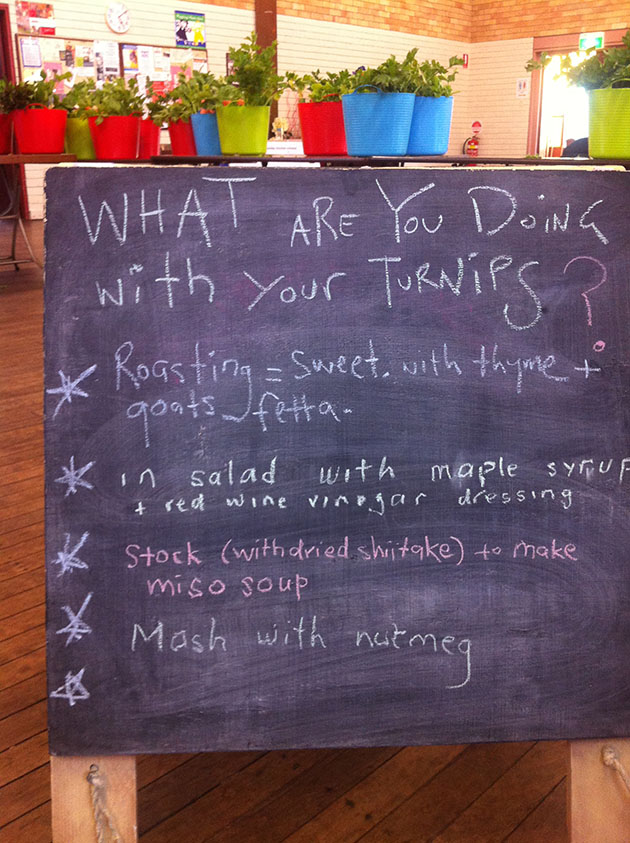 WHAT ARE YOU DOING
With Your TURNIPS?
Roasting = Sweet. with thyme +
goats fetta-
in salad with maple syrup
+ red wine vinegar dressing
Stock (with dried shiitake) to make
miso soup
Mash with nutmeg